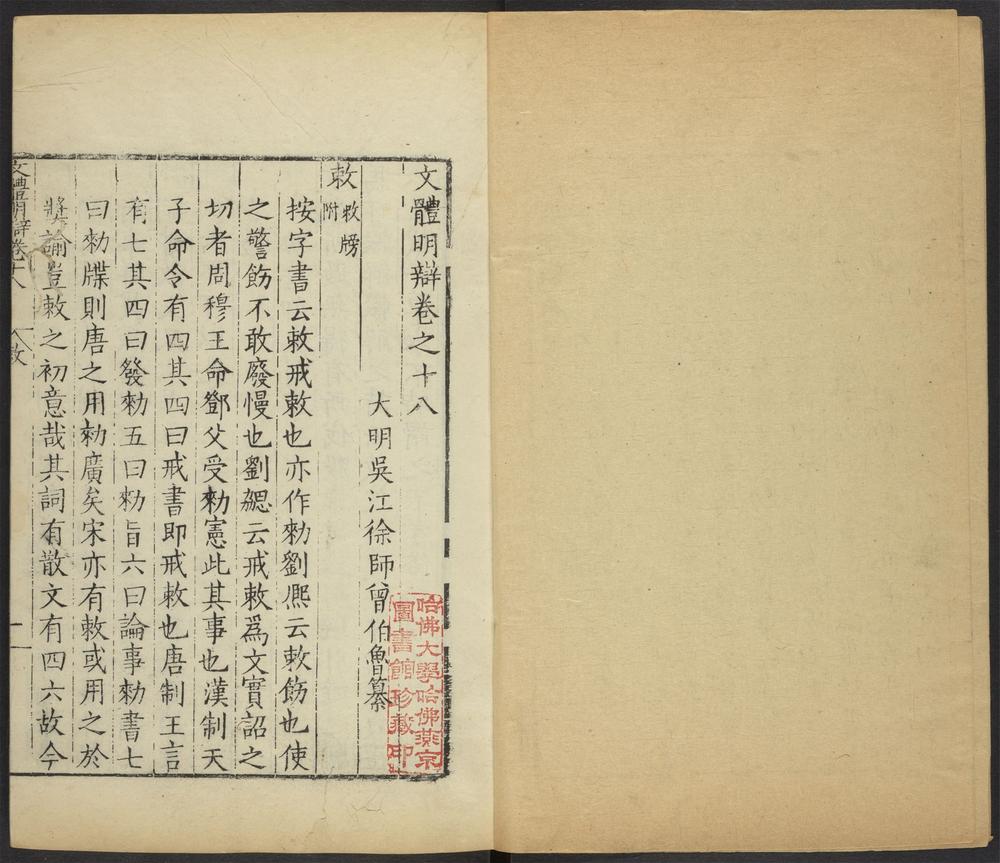 文體明辯卷之十八
大明吳江徐師曾伯魯纂
敕敕牓附
按字書云敕戒敕也亦作勑劉熈云敕飭也使
之警飭不敢廢慢也劉勰云戒敕爲文實詔之
切者周穆王命鄧父受勑憲此其事也漢制天
子命令有四其四曰戒書即戒敕也唐制王言
有七其四曰發勑五曰勑旨六曰論事勑書七
曰勑牒則唐之用勑廣矣宋亦有敕或用之於
奬諭豈敕之初意哉其詞有散文有四六故今
文體明辯卷十八
敕
一
哈佛大學哈佛燕京
圖書館珍藏印